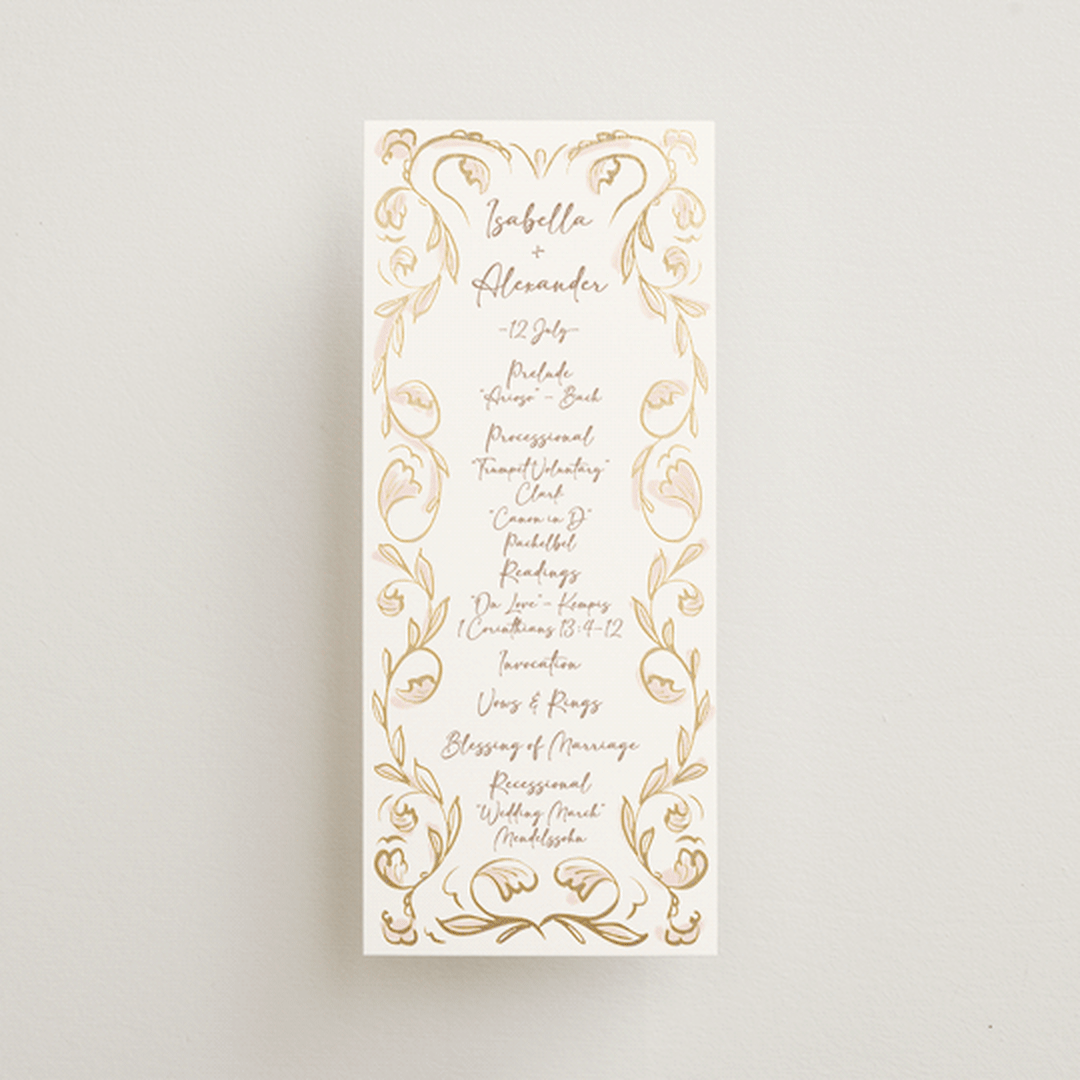 Isabella
+
Alexander
-12 July-
Prelude
"Arioso" - Bach
Processional
"Trumpet Voluntary"
Clark
"Canon in D"
Pachelbel
Readings
"On Love" - Kempis
1 Corinthians 13:4-12
Invocation
Vows & Rings
Blessing of Marriage
Recessional
"Wedding March"
Mendelssohn